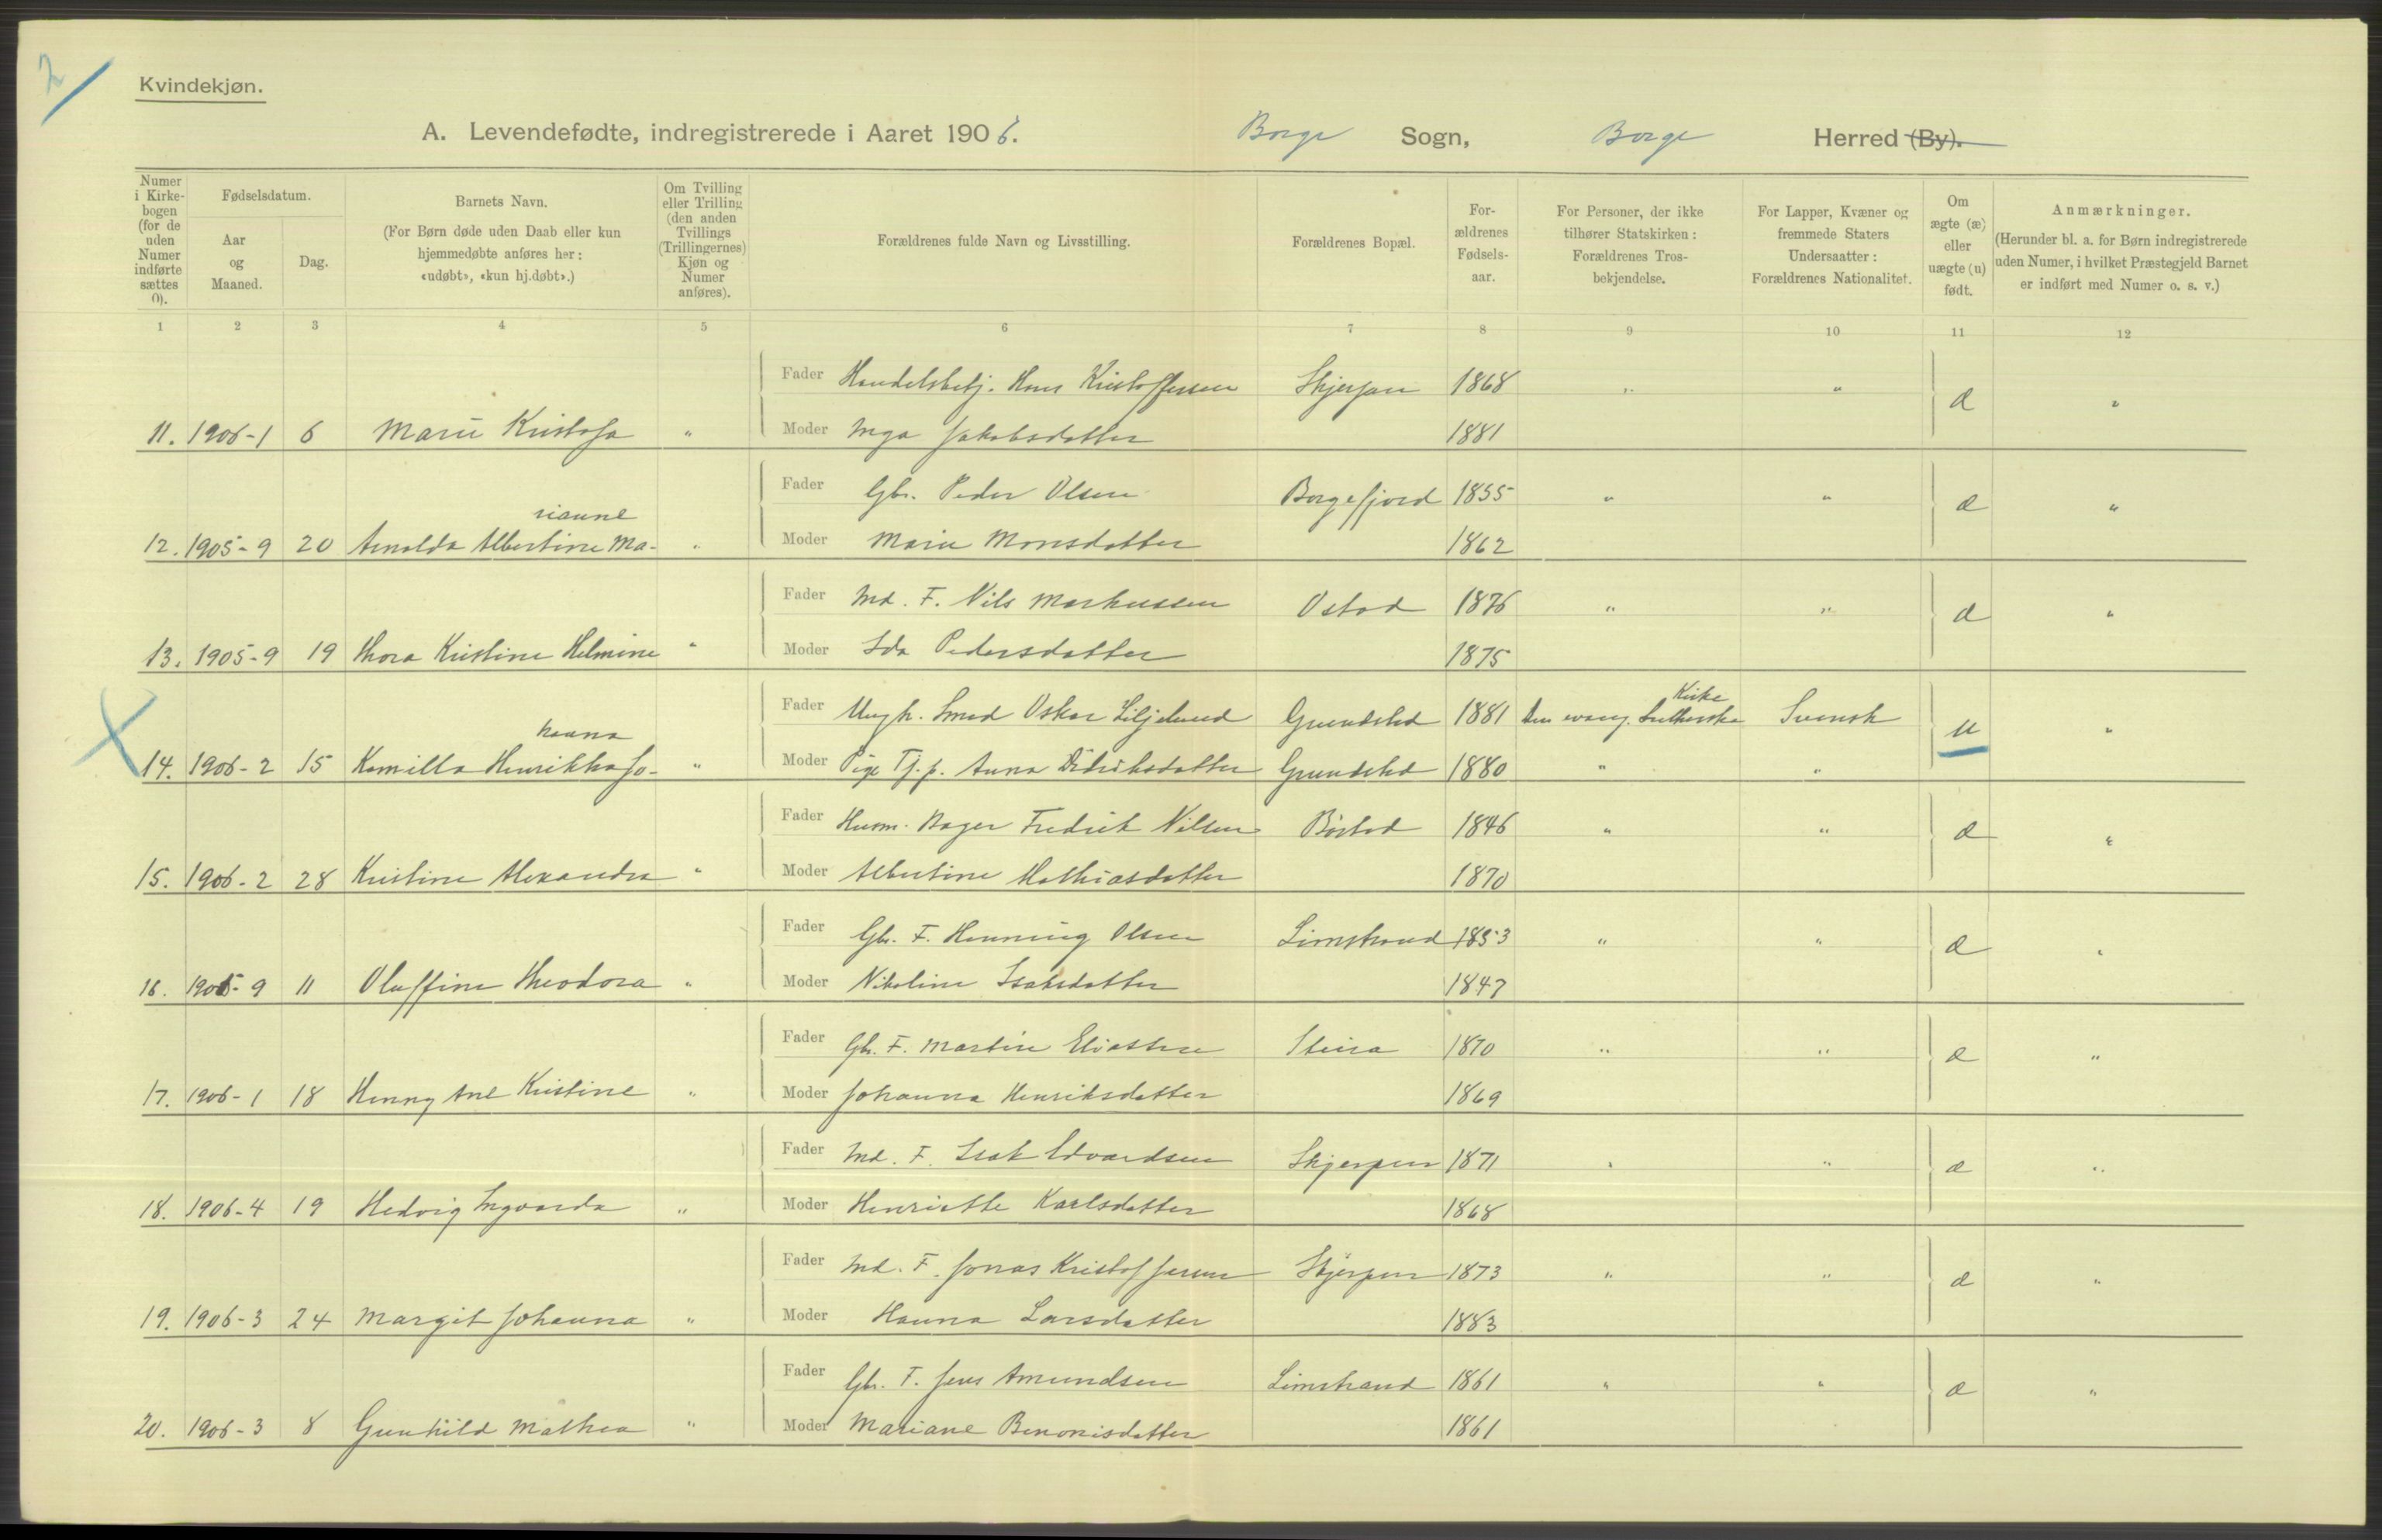 2
Kvindekjøn.
A. Levendefødte, indregistrerede i Aaret 1906. Borge Sogn, Borge Herred (By).
Numer i Kirkebogen (for de uden Numer indførte sættes 0).
Fødselsdatum.
Aar og Maaned.
Dag.
Barnets Navn.
(For Børn døde uden Daab eller kun hjemmedøbte anføres her: «udøbt», «kun hj.døbt».)
Om Tvilling eller Trilling (den anden Tvillings (Trillingernes) Kjøn og Numer anføres).
Forældrenes fulde Navn og Livsstilling.
Forældrenes Bopæl.
Forældrenes Fødselsaar.
For Personer, der ikke tilhører Statskirken: Forældrenes Trosbekjendelse.
For Lapper, Kvæner og fremmede Staters Undersaatter: Forældrenes Nationalitet.
Om ægte (æ) eller uægte (u) født.
Anmærkninger.
(Herunder bl. a. for Børn indregistrerede uden Numer, i hvilket Præstegjeld Barnet er indført med Numer o. s. v.)
1 2 3 4 5 6 7 8 9 10 11 12
Fader Handelsbetj. Hans Kristoffersen Skjerpen 1868 " " æ "
11. 1906-1 6 Marie Kristofa " Moder Inga Jakobsdatter 1881
Fader Gbr. Peder Olsen Borgefjord 1855 " " æ "
rianne
12. 1905-9 20 Arnolda Albertine Ma- " Moder Marie Monsdatter 1862
Fader Ind. F. Nils Markussen Ostad 1876 " " æ "
13. 1905-9 19 Thora Kristine Helmine " Moder Ida Pedersdatter 1875
Kirke
Fader Ungk. Smed Oskar Liljelund Grundstad 1881 Den evang. Lutherske Svensk u "
hanna
14. 1906-2 15 Kamilla Henrikka Jo- " Moder Pige Tj.p. Anna Didriksdatter Grundstad 1880 " "
Fader Husm. Bager Fredrik Nilsen Børstad 1846 " " æ "
15. 1906-2 28 Kristine Alexandra " Moder Albertine Mathiasdatter 1870
Fader Gbr. F. Henning Olsen Limstrand 1853 " " æ "
16. 1905-9 11 Oluffine Theodora " Moder Nikoline Isaksdatter 1847
Fader Gbr. F. Martin Eliassen Steira 1870 " " æ "
17. 1906-1 18 Henny Ane Kristine " Moder Johanna Henriksdatter 1869
Fader Ind. F. Isak Edvardsen Skjerpen 1871 " " æ "
18. 1906-4 19 Hedvig Ingvarda " Moder Henriette Karlsdatter 1868
Fader Ind. F. Jonas Kristoffersen Skjerpen 1873 " " æ "
19. 1906-3 24 Margit Johanna " Moder Hanna Larsdatter 1883
Fader Gbr. F. Jens Amundsen Limstrand 1861 " " æ "
20. 1906-3 8 Gunhild Mathea " Moder Mariane Benonisdatter 1861